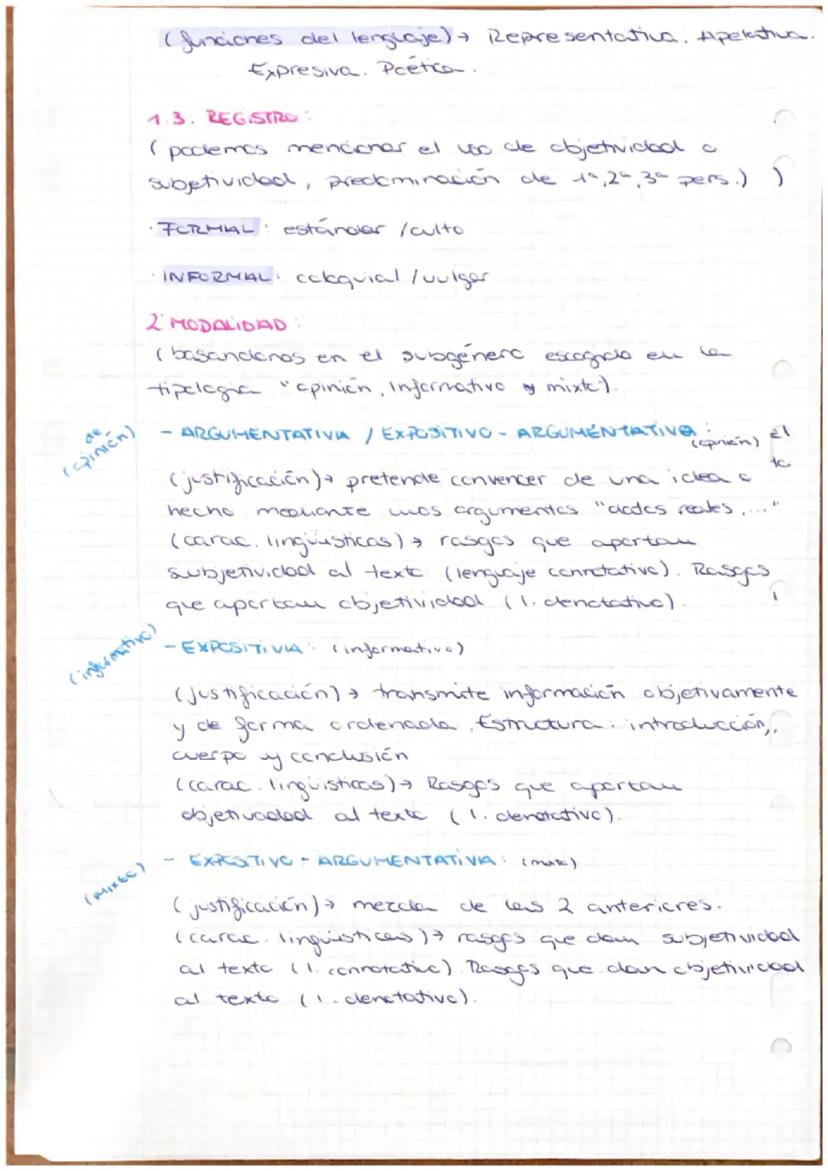 (funciones del lenguaje) → Representativa. Apelativa.
Expresiva. Poética.
1.3. REGISTRO:
(podemos mencionar el uso de objetividad o
subjetividad, predominación de 1ª, 2ª, 3ª pers.) )
· FORMAL: estándar / culto
· INFORMAL: coloquial / vulgar
2. MODALIDAD:
(basandonos en el subgénero escogido en la
tipología "opinión, Informativo y mixto).
(de opinión)
- ARGUMENTATIVA / EXPOSITIVO - ARGUMENTATIVA: (opinión) el
to
(justificación) → pretende convencer de una idea o
hecho mediante unos argumentos "datos reales, ..."
(carac. lingüísticas) → rasgos que aportan
subjetividad al texto (lenguaje connotativo). Rasgos
que aportan objetividad (l. denotativo).
(informativo)
- EXPOSITIVA: (informativo)
(justificación) → transmite información objetivamente
y de forma ordenada. Estructura: introducción,
cuerpo y conclusión
(carac. lingüísticas) → Rasgos que aportan
objetividad al texto (l. denotativo).
(mixto)
- EXPOSTIVO - ARGUMENTATIVA: (mixto)
(justificación) → mezcla de las 2 anteriores.
(carac. lingüísticas) → rasgos que dan subjetividad
al texto (l. connotativo). Rasgos que dan objetividad
al texto (l. denotativo).